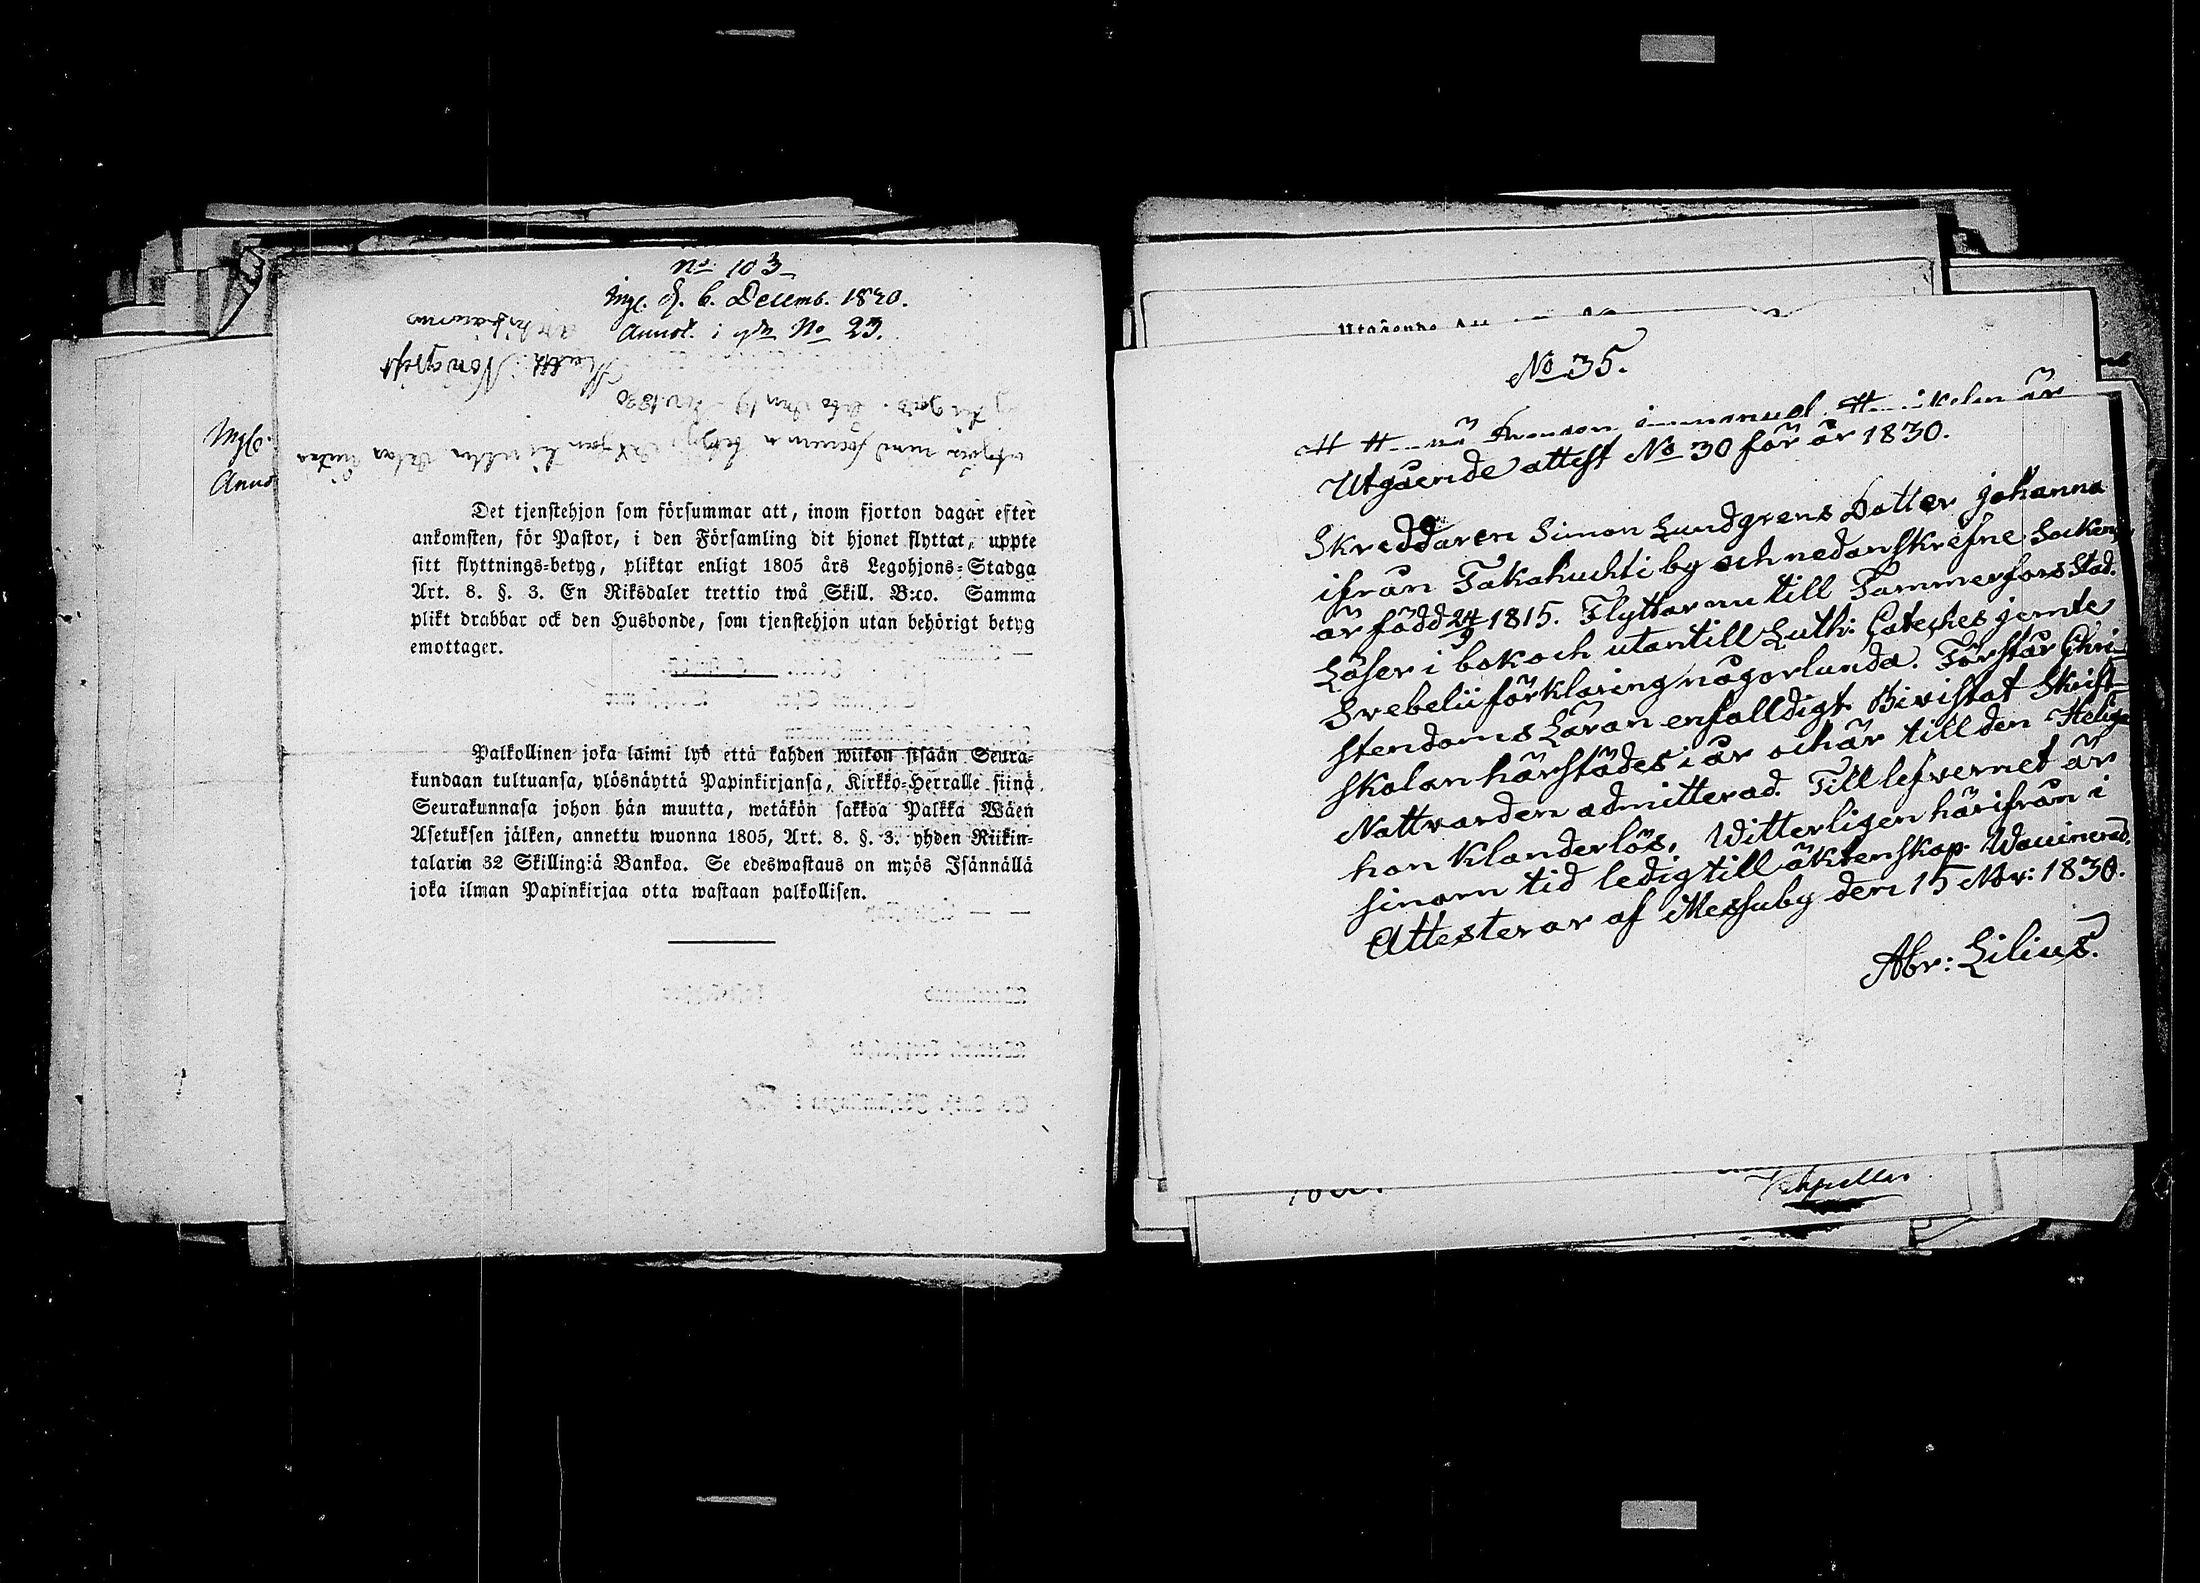 No 103
Ingl. d. 6. Decemb. 1830.
Annot. i No 23.
Det tjenstehjon som försummar att, inom fjorton dagar efter
ankomsten, för Pastor, i den Församling dit hjonet flyttat, uppte
sitt flyttnings-betyg, pliktar enligt 1805 års Legohjons-Stadga
Art. 8. §. 3. En Riksdaler trettio twå Skill. B:co. Samma
plikt drabbar ock den Husbonde, som tjenstehjon utan behörigt betyg
emottager.
Palkollinen joka laimi lyö että kahden wiikon sisään Seura-
kundaan tultuansa, ylösnäyttä Papinkirjansa, Kirkko-Herralle siinä
Seurakunnasa johon hän muutta, wetäkön sakkoa Palkka Wäen
Asetuksen jälken, annettu wuonna 1805, Art. 8. §. 3. yhden Riikin-
talarin 32 Skillingiä Bankoa. Se edeswastaus on myös Isännällä
joka ilman Papinkirjaa otta wastaan palkollisen.
Inglc.
Anno
No 35.
Utgående attest No 30 för år 1830.
Skreddaren Simon Lundgrens Dotter Johanna
ifrån Takahuchti by och nedanskrefne Socken,
är född 24/9 1815. Flyttar nu till Tammerfors Stad.
Läser i bok och utantill Luth: Cateches jemte
Svebelii förklaring någorlunda. Förstår Chri-
stendoms Läran enfalldigt. Bivistat Skrift-
skolan härstädes i år och är till den Heliga
Nattvarden admitterad. Till lefvernet är
hon klanderlös. Witterligen härifrån i
sinom tid ledig till äktenskap. Waccinerad.
Attesterar af Messuby den 15 Nov: 1830.
Abr: Lilius.